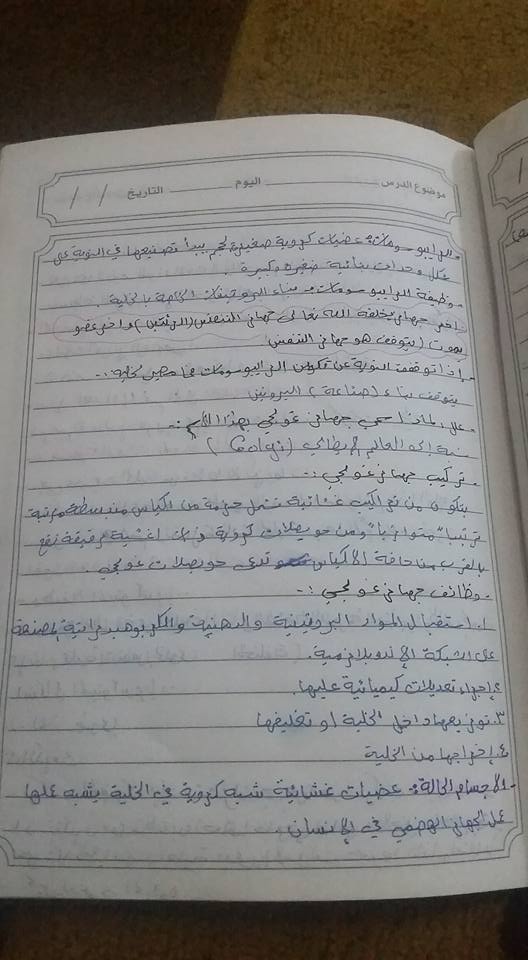 موضوع الدرس اليوم التاريخ / /
- الرايبوسومات: عضيات كروية صغيرة الحجم يبدأ تصنيعها في النوية على
شكل وحدات بنائية صغيرة وكبيرة.
- وظيفة الرايبوسومات: بناء البروتينات الخاصة بالخلية
اخر جهاز يخلقه الله تعالى جهاز التنفس (الرئتين) واخر عضو
يموت (يتوقف هو جهاز التنفس
- إذا توقفت النوية عن تكوين الرايبوسومات فما مصير الخلية..
يتوقف بناء (صناعة) البروتين
- علل لماذا سمي جهاز غولجي بهذا الاسم:-
نسبة إلى العالم الإيطالي (Golgi)
- تركيب جهاز غولجي:-
يتكون من تراكيب غشائية تشمل حزمة من أكياس منبسطة مرتبة
ترتيباً متوازياً ومن حويصلات كروية ذات اغشية رقيقة تقع
بالقرب من حافة الأكياس تدعى حويصلات غولجي.
- وظائف جهاز غولجي:-
١. استقبال المواد البروتينية والدهنية والكربوهيدراتية المصنعة
على الشبكة الإندوبلازمية.
٢. إجراء تعديلات كيميائية عليها.
٣. توزيعها داخل الخلية او تغليفها
٤. إخراجها من الخلية
- الأجسام الحالة: عضيات غشائية شبه كروية في الخلية يشبه عملها
عمل الجهاز الهضمي في الإنسان.